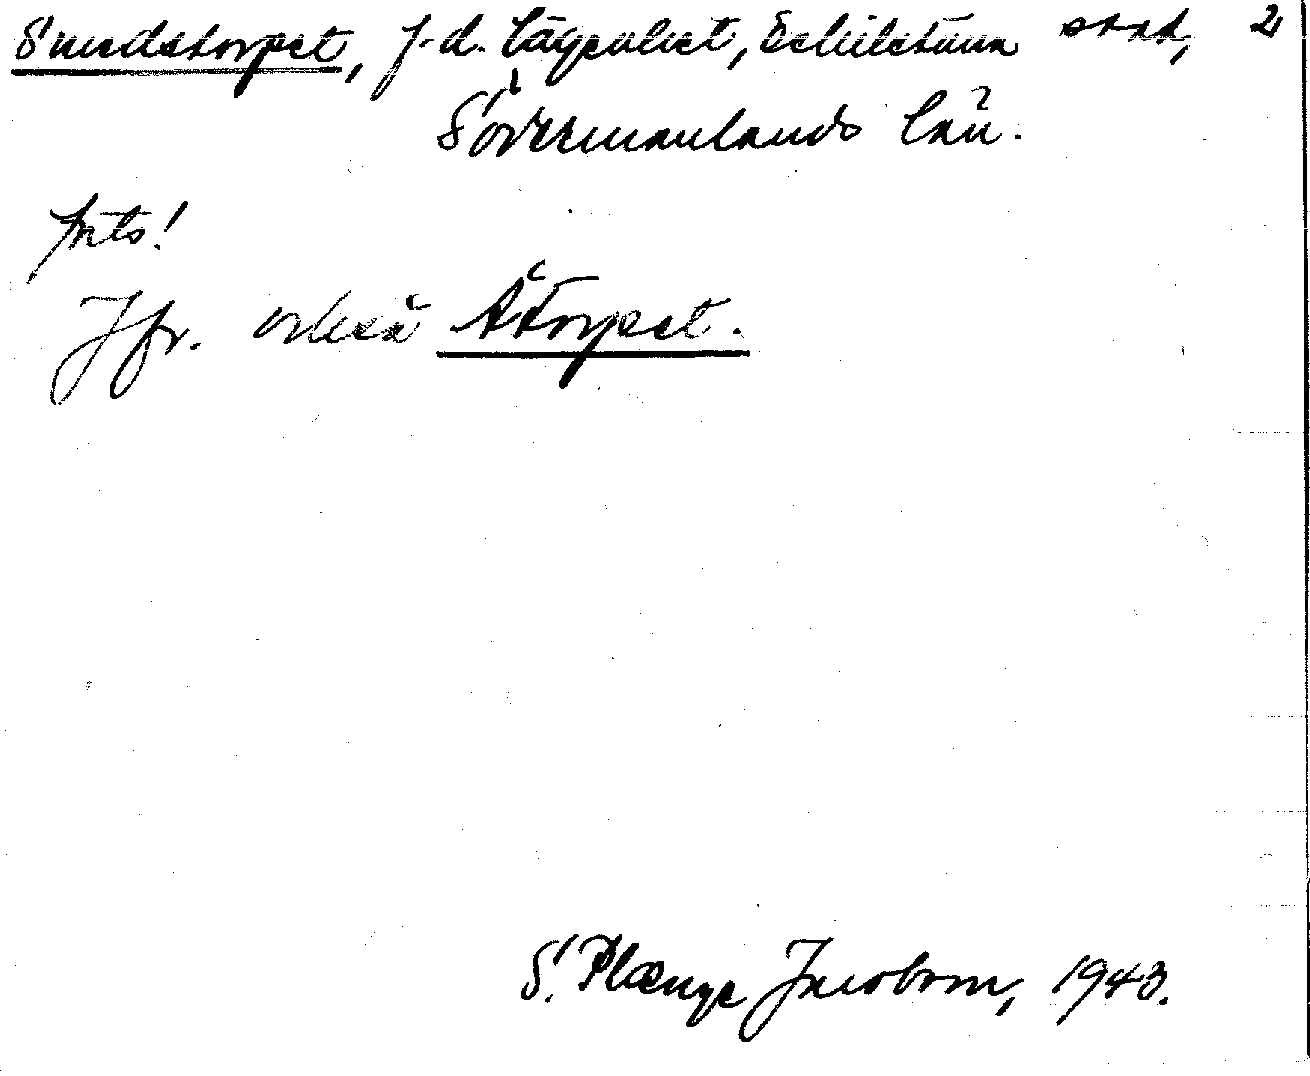 Sundstorpet, f.d. lägenhet, Eskilstuna stad, 2
Södermanlands län.
Jfr. också Åtorpet.
S. Plænge Jacobson, 1943.